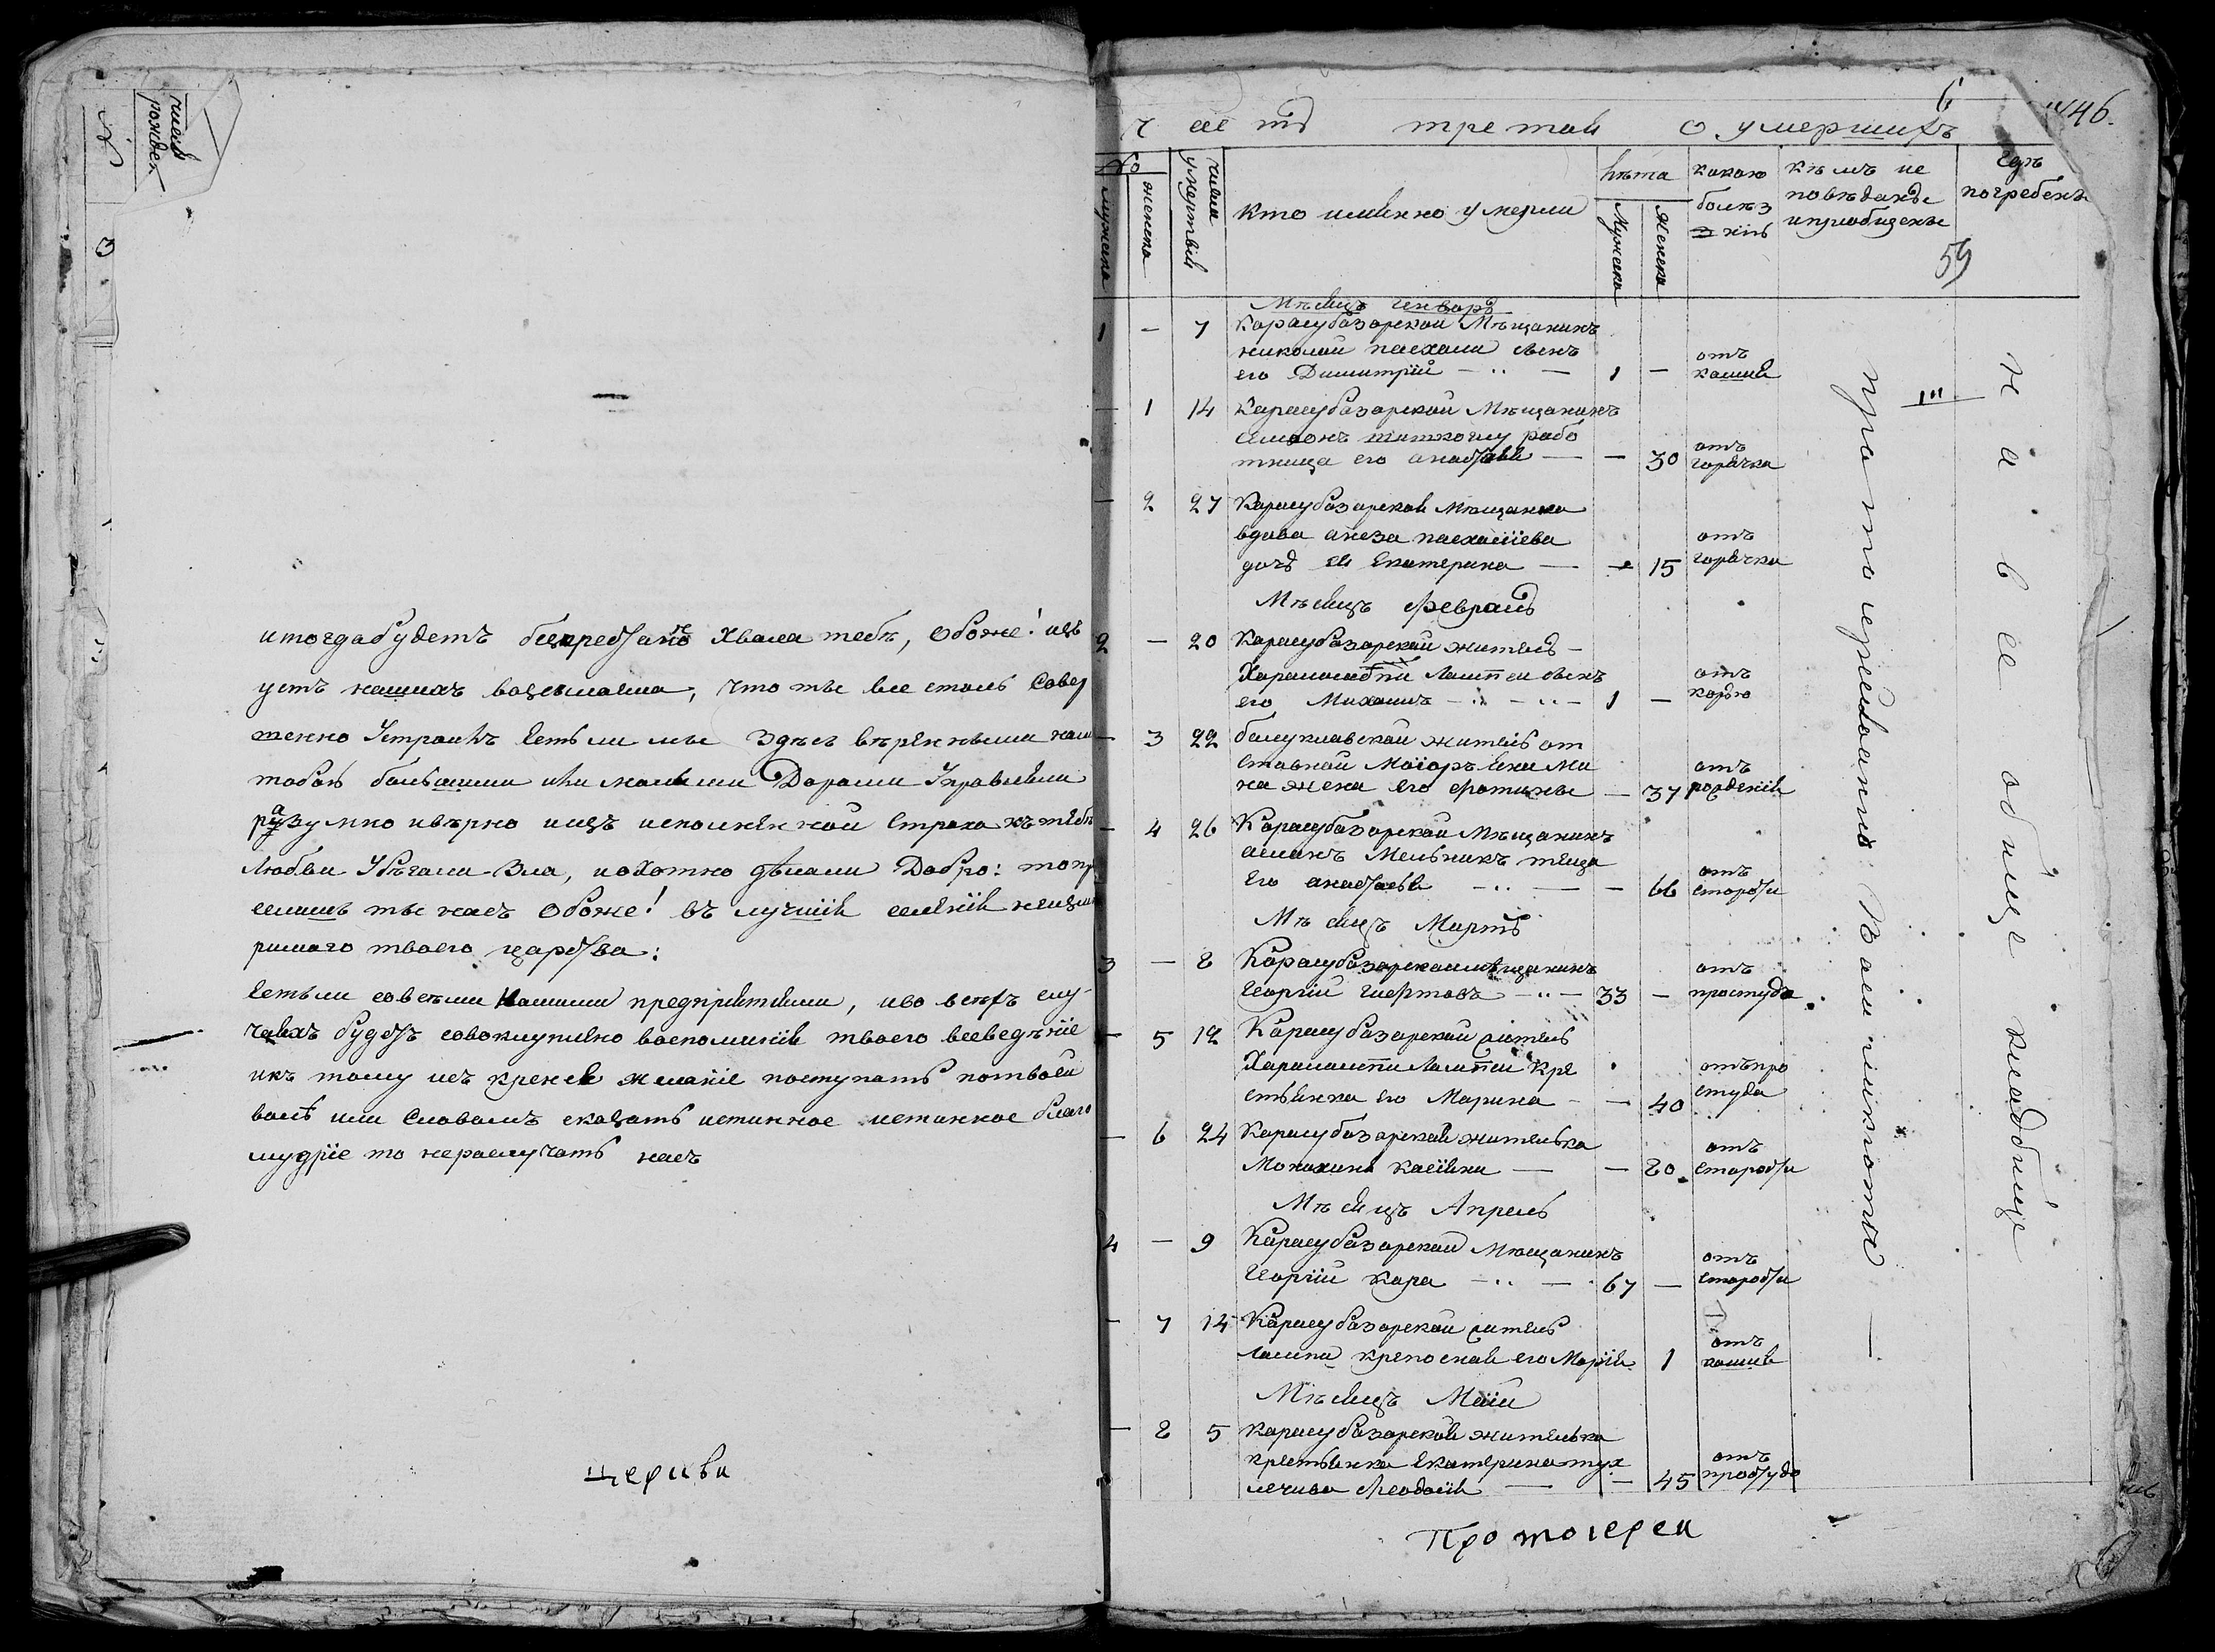 число
рожден
№
3
и тогда будетъ Хвала тебѣ, о боже! изъ
устъ нашихъ возсылаема, что ты все столь Совер
шенно Устроилъ Естьли мы Здѣсь ввѣренными нам
тобою большими или малыми Дарами Управляемы
разумно и вѣрно и изъ исполненной Страха къ тебѣ
Любви Убѣгали Зла, и охотно дѣлали Добро: то пр
селишь ты насъ о боже! въ лучшія селенія неизм
римаго твоего царства:
Естьли совсѣми Нашими предпріятіями, и во всѣхъ слу
чаяхъ будетъ совокуплено воспоминія твоего всеведѣніе
и къ тому изъ желаніе поступать по твоей
волѣ или Словомъ сказать истинное истинное благо
мудріе то неразлучать насъ
церкви
6
446.
часть третая о умершихъ
№
мужеска
женска
числа умертвій
Кто именно умерли
Лѣта
Мужеска
Женска
какою болѣз нію
Кѣмъ исповѣданы и приобщены
Гдѣ погребены
59
Мѣсяцъ Генварь
1 — 7 Карасубазарской Мѣщанинъ
николай пасхали сынъ
его Димитрій — 1 — отъ кашля
— 1 14 Карасубазарской Мѣщанинъ
рабо
тница его анастасія — — 30 отъ горячка
— 2 27 Карасубазарская Мѣщанка
вдова анеза пасхаліева
дочь ея Екатерина — — 15 отъ горячка
Мѣсяцъ Февраль
2 — 20 Карасубазарской житель —
сынъ
его Михаилъ — 1 — отъ корью
— 3 22 балуклавской житель от
ставной Маіоръ
жена его фотины — 37 отъ рожденія
— 4 26 Карасубазарской Мѣщанинъ
Мельникъ теща
Его анастасія — — 66 отъ старости
Мѣсяцъ Мартъ
3 — 8 Карасубазарской мѣщанинъ
Георгій — 33 — отъ простуда
— 5 12 Карасубазарской житель
Харалампи Лампси Кре
стьянка его Марина — — 40 отъ простуда
— 6 24 Карасубазарская жителька
Монахиня — — 80 отъ старости
Мѣсяцъ Апрель
4 — 9 Карасубазарской Мѣщанинъ
Георгій Кара — 67 — отъ старости
— 7 14 Карасубазарской житель
Лампси крепосная его Марія 1 отъ кашля
Мѣсяцъ Маій
— 8 5 Карасубазарская жителька
крестьянка Екатерина
Феодосія — — 45 отъ простуда
протоіереемъ
на всеобще кладбище
Протоіереи